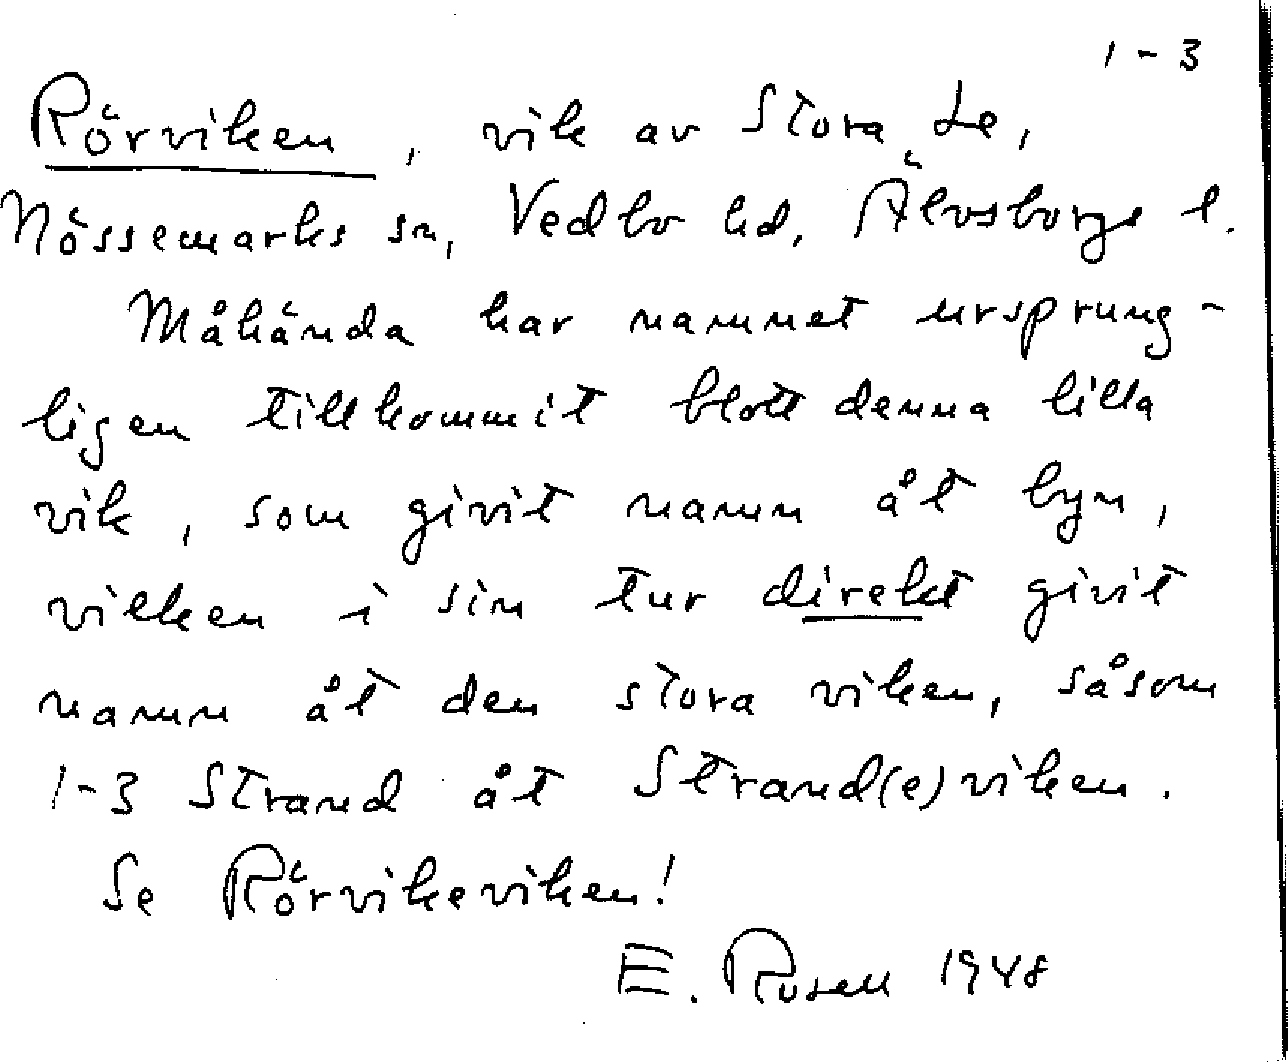 1-3
Rörviken, vik av Stora Le,
Nössemarks sn, Vedbo hd, Älvsborgs l.
Måhända har namnet ursprung-
ligen tillkommit blott denna lilla
vik, som givit namn åt byn,
vilken i sin tur direkt givit
namn åt den stora viken, såsom
1-3 Strand åt Strand(e)viken.
Se Rörvikeviken!
E. Rosell 1948